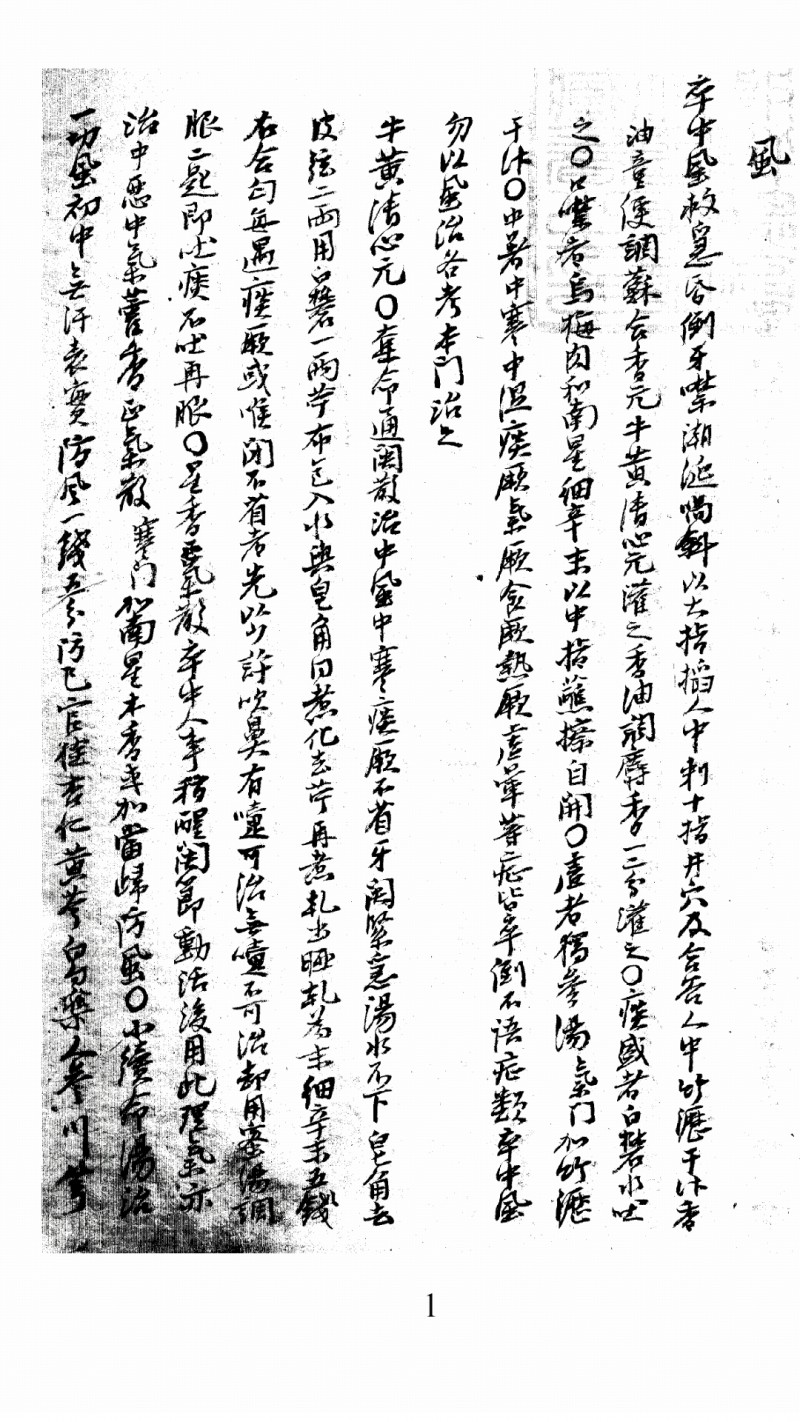 風
卒中風救急昏倒牙噤潮涎喎斜以大指搯人中刺十指井穴及合谷人中竹瀝干汁香
油童便調蘇合香元牛黃清心元灌之香油調麝香一二分灌之〇痰盛者白礬水吐
之〇口噤者烏梅肉和南星細辛末以中指蘸擦自開〇虛者獨參湯氣門加竹瀝
干汁〇中暑中寒中濕痰厥氣厥食厥熱厥虛暈等症皆卒倒不語症類卒中風
勿以風治各考本門治之
牛黃清心元〇奪命通關散治中風中寒痰厥不省牙關緊急湯水不下皂角去
皮弦二兩用白礬一兩苧布包入水與皂角同煮化去苧再煮乾出晒乾為末細辛末五錢
右合勻每遇痰厥或喉閉不省者先以少許吹鼻有嚏可治無嚏不可治却用蜜湯調
服二匙即吐痰不吐再服〇星香正氣散卒中人事稍醒關節動活後用此理氣亦
治中惡中氣藿香正氣散寒門加南星木香或加當歸防風〇小續命湯治
一切風初中無汗表實防風一錢五分防己官桂杏仁黃芩白芍藥人參川芎
1